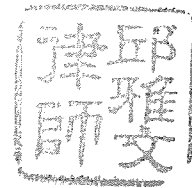 邱雅雯
律師